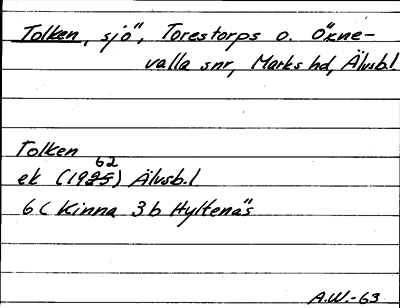 Tolken, sjö, Torestorps o. Öxne-
valla snr, Marks hd, Älvsb.l
Tolken
62
ek (1925) Älvsb.l
6C Kinna 3b Hyltenäs
A.W.-63